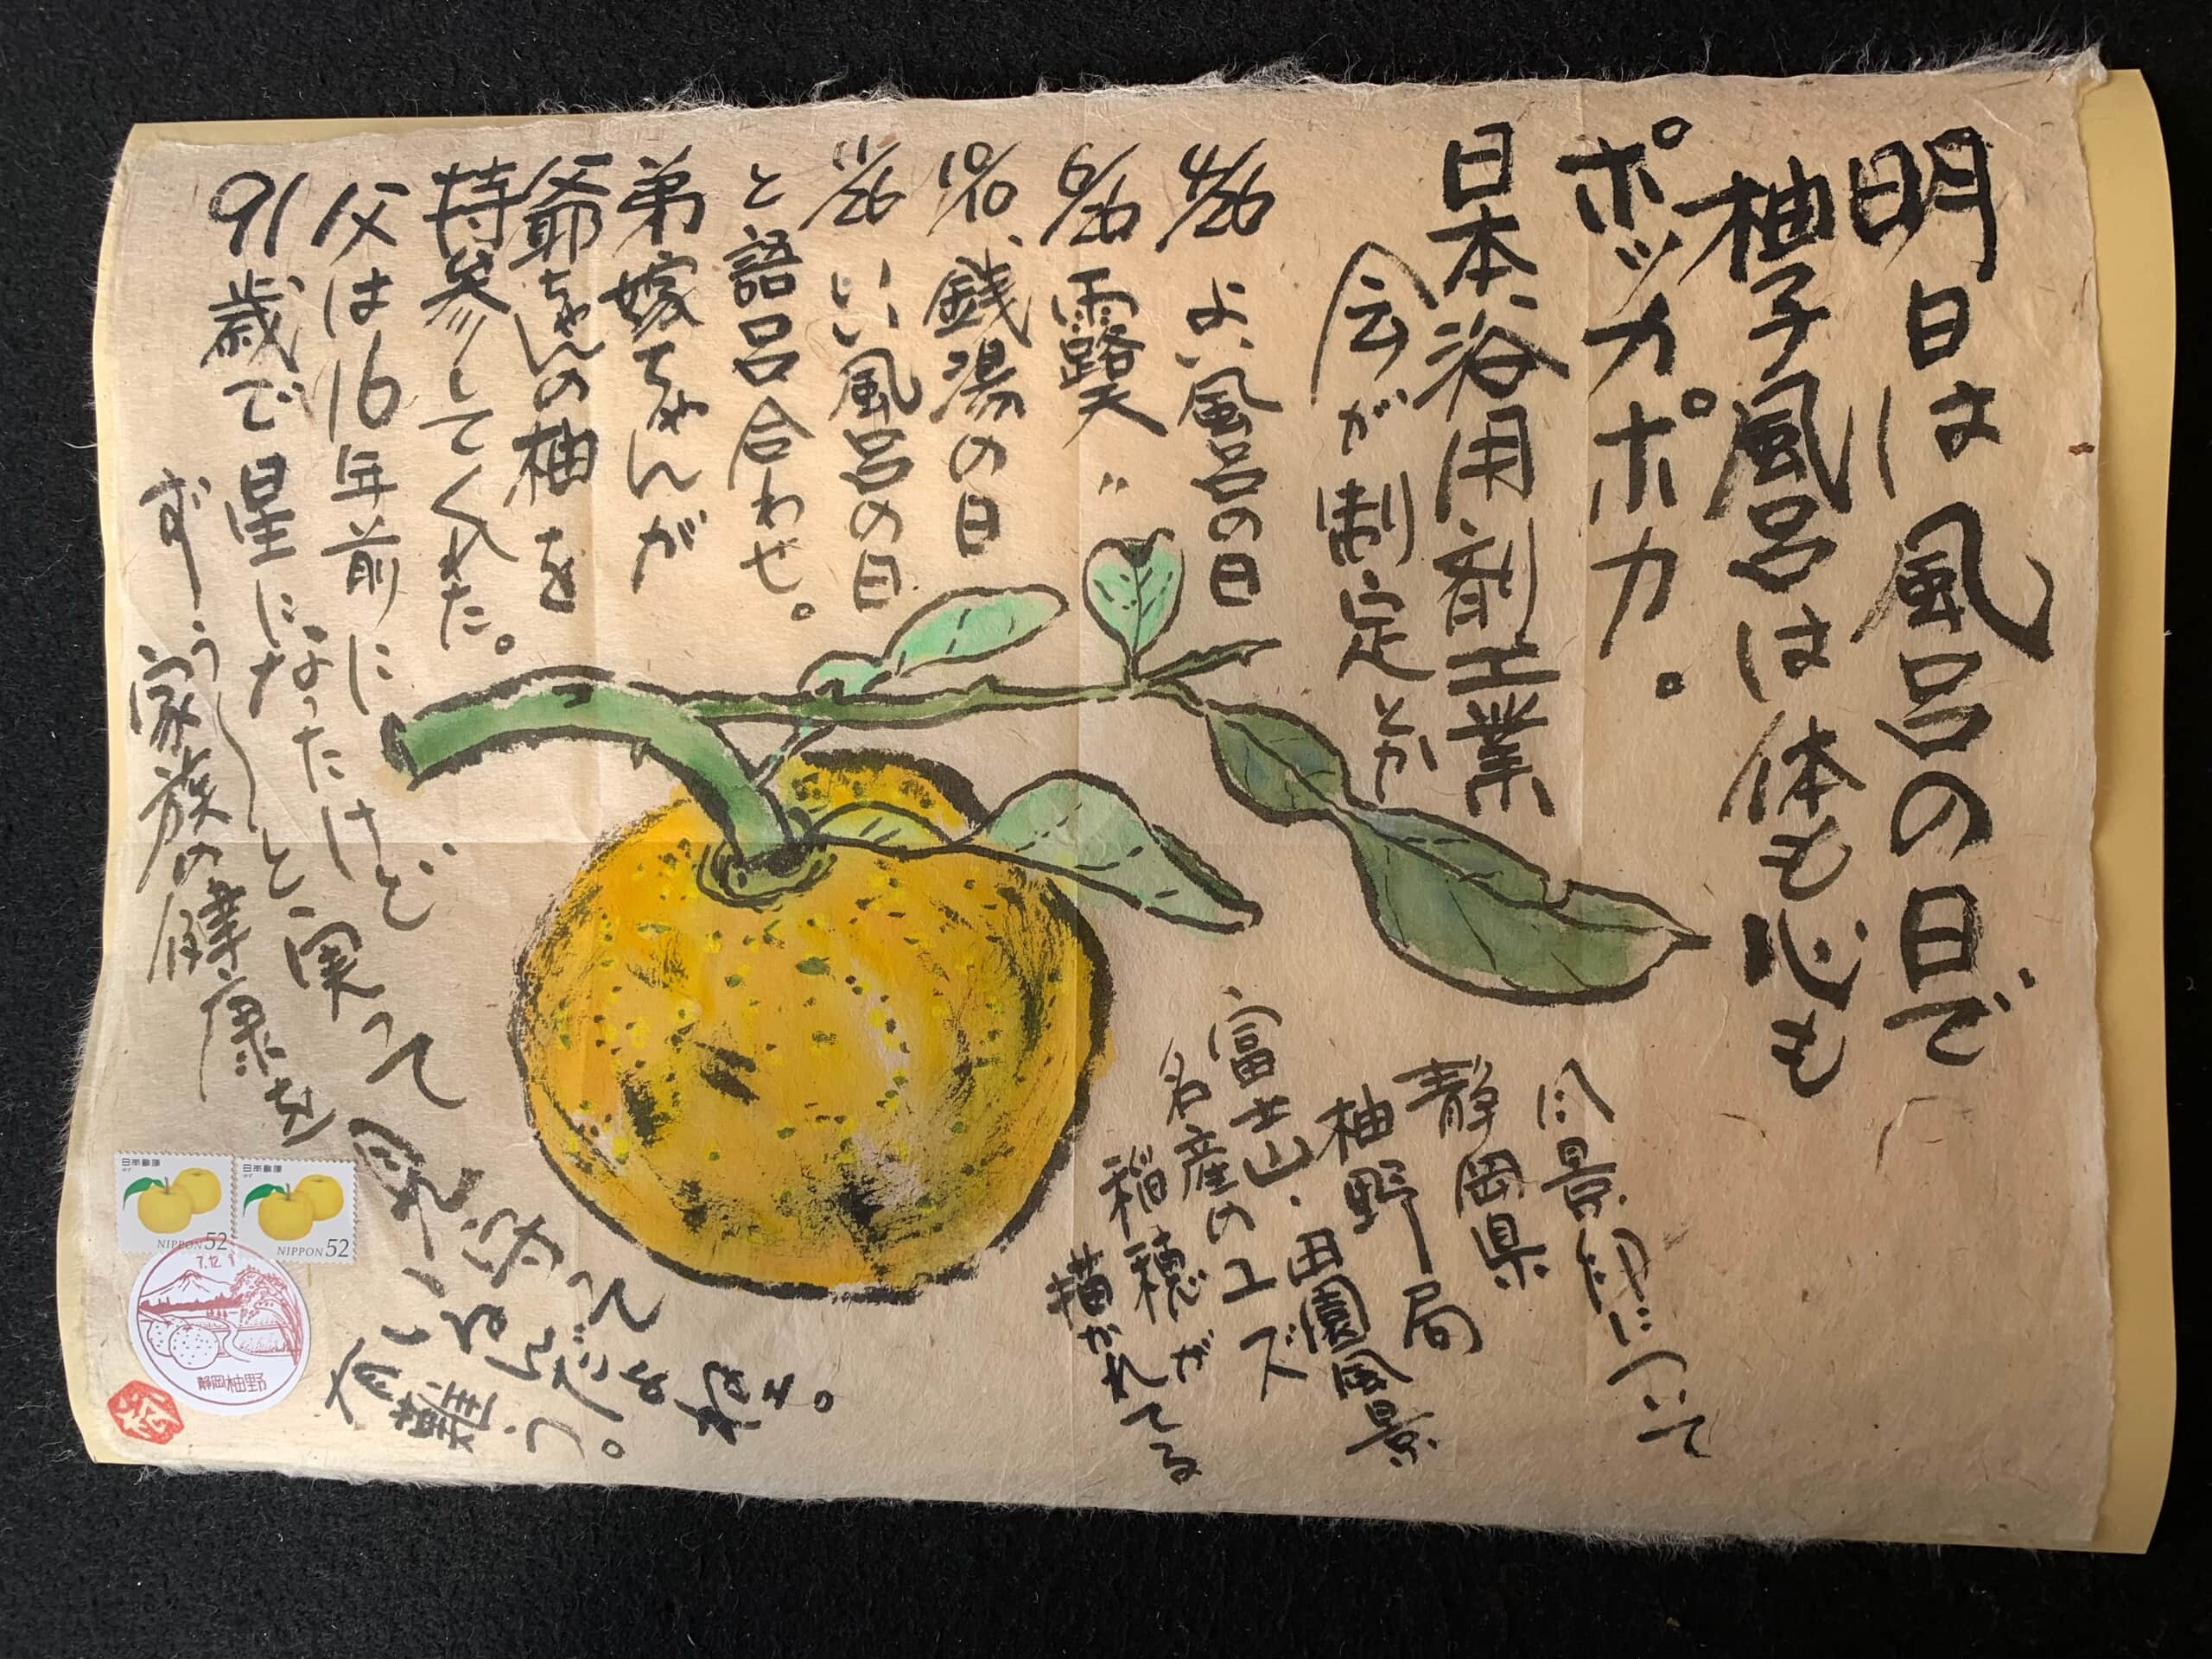 明日は風呂の日で
柚子風呂は体も心も
ポッカポカ。
日本浴用剤工業
会が制定とか
4/26 よい風呂の日
6/26 露天〃
10/10、銭湯の日
11/26 いい風呂の日
と語呂合わせ。
弟嫁ちゃんが
爺ちゃんの柚を
持参してくれた。
父は16年前に
91歳で星になったけど
ずーうーっと実って
家族の健康を
見守って
いるんだよねェ。
有難う。
風景印について
静岡県
柚野局
富士山・田園風景
名産のユズ
稲穂が
描かれてる
日本郵便
NIPPON 52
日本郵便
NIPPON 52
7.12.1
静岡柚野